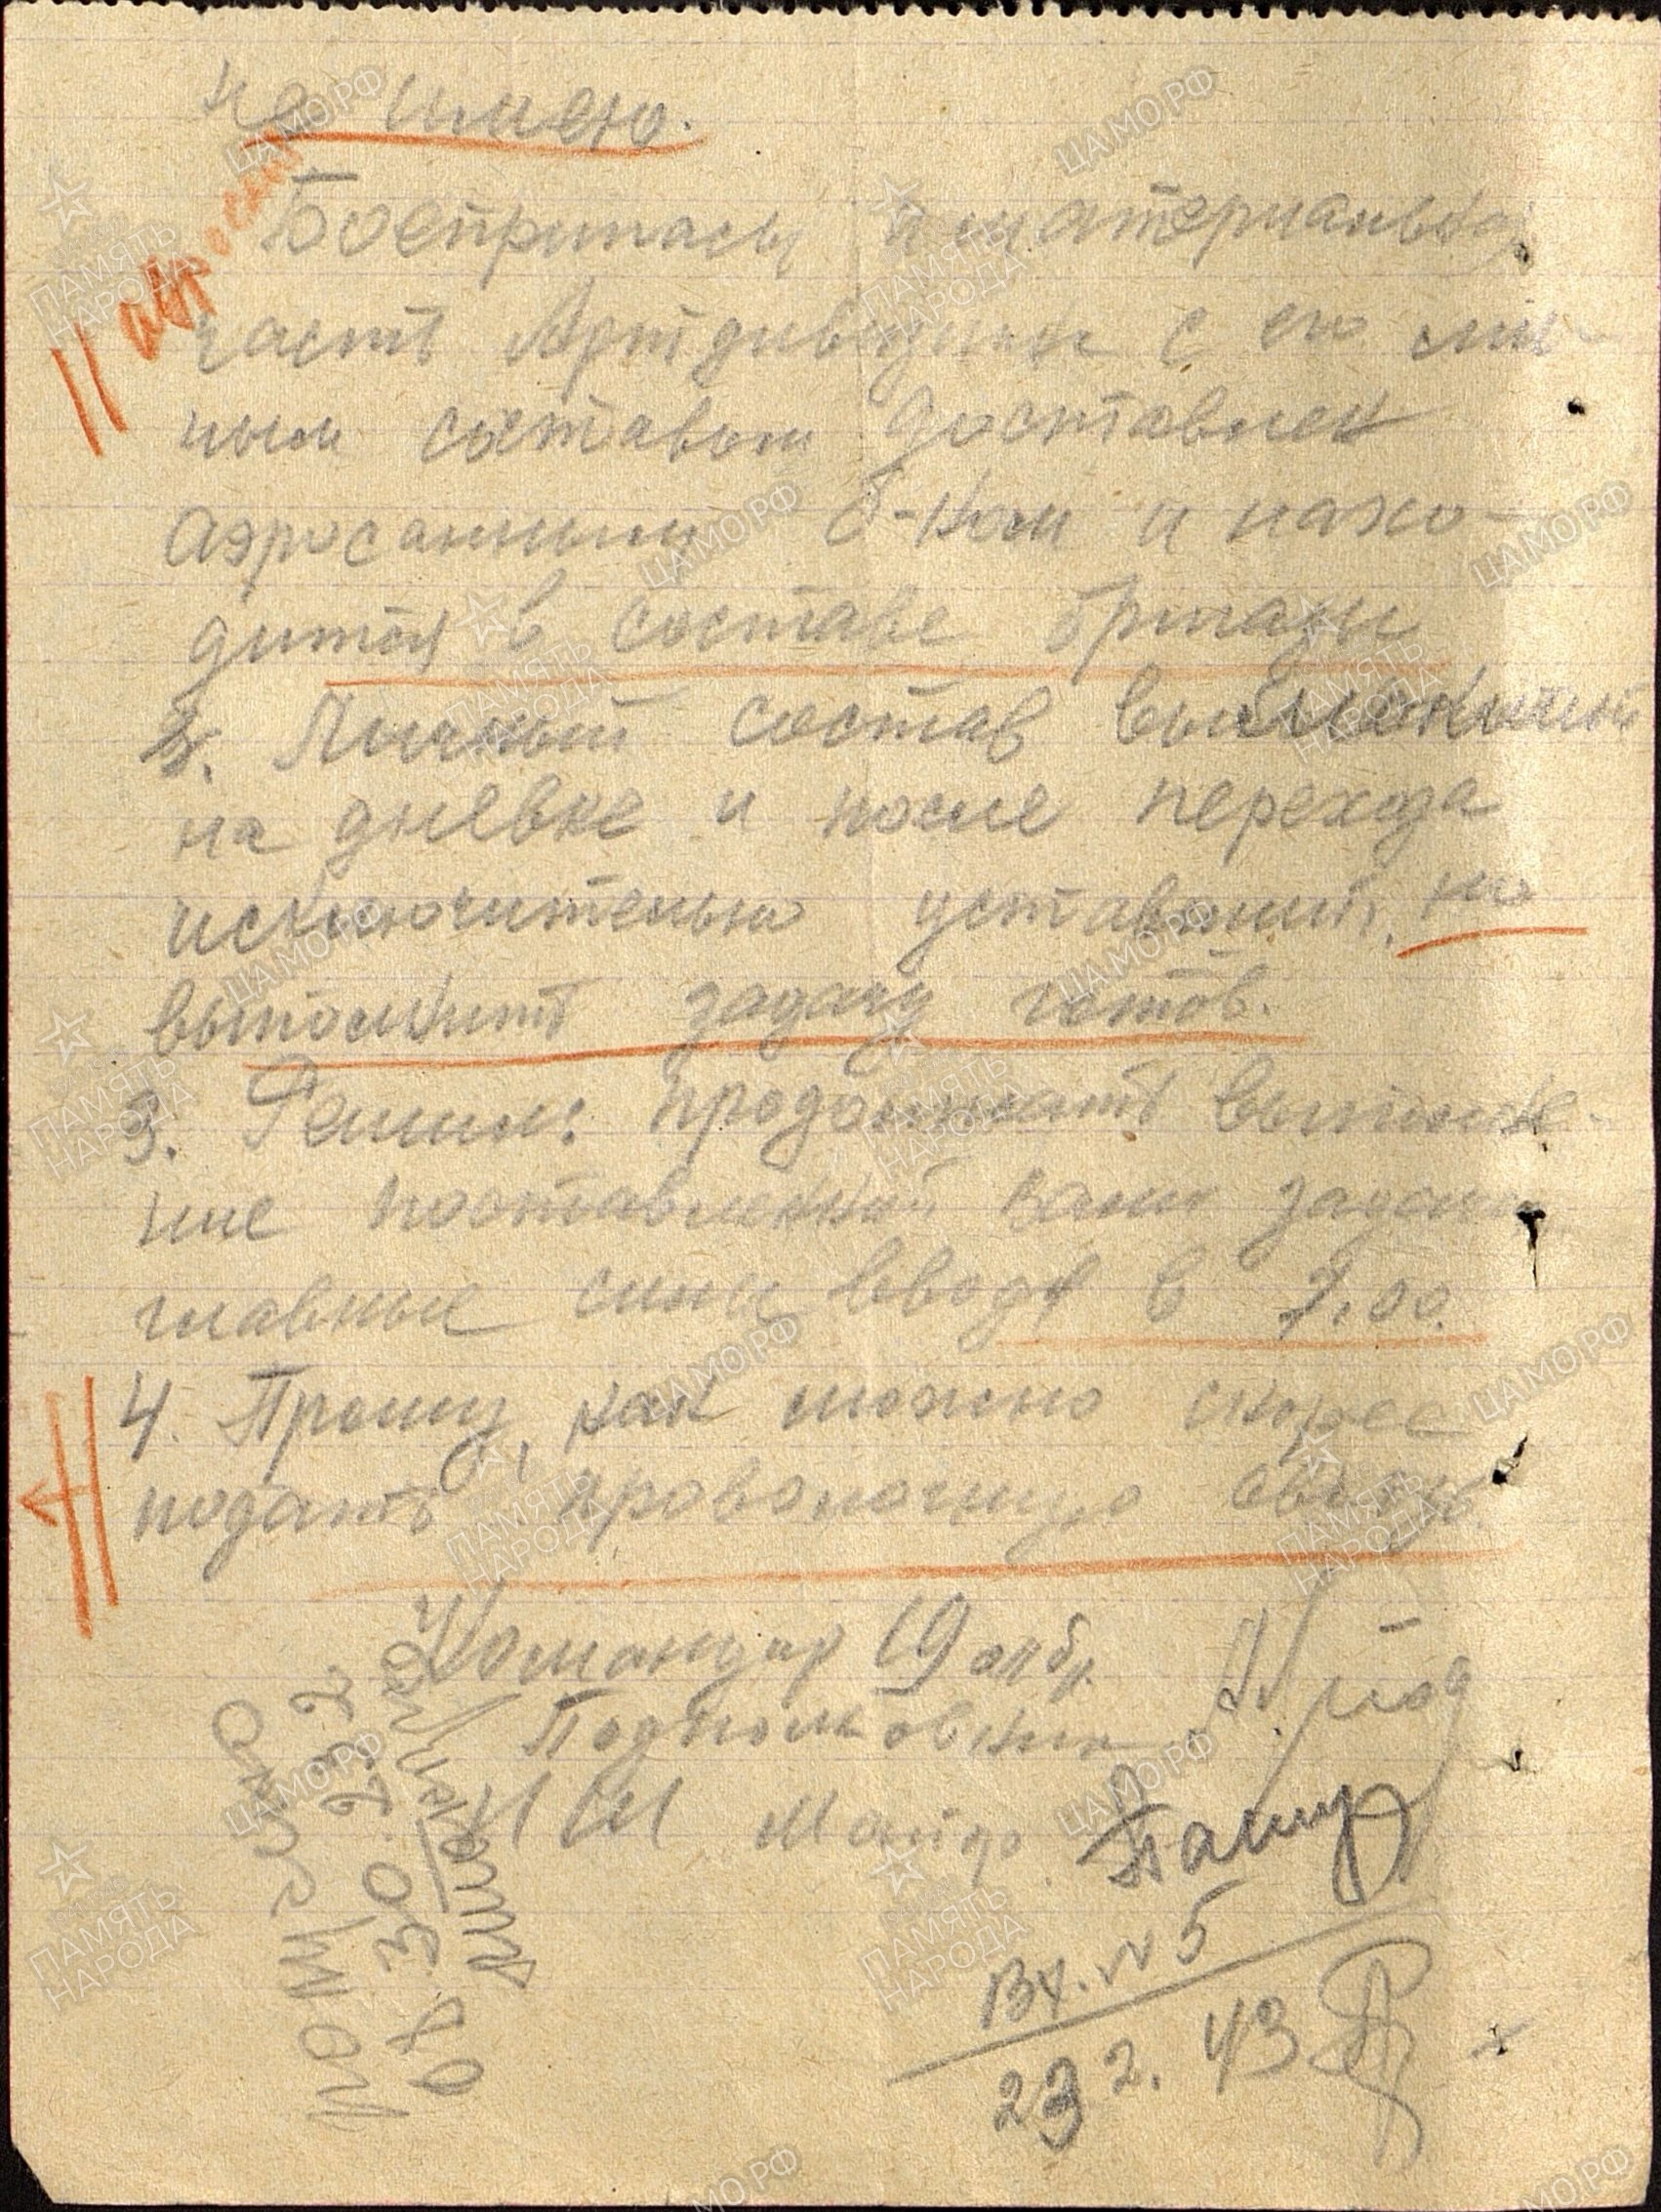 не имею.
Боеприпасы и материальная
часть Артдивизион с его лич-
ным составом доставлен
аэросанным б-ном и нахо-
дится в составе бригады
2. Личный состав
на дневке и после перехода
исключительно уставший, но
выполнить задачу готов.
3. Решил: продолжать выполне-
ние поставленной вами задачи
главные силы ввожу в 7.00.
4. Прошу, как можно скорее
подать проволочную связь.
Командир 19 олбр.
Подполковник
НШ Майор
Получено
08.30. 23.2
Вх. №5
23 2. 43